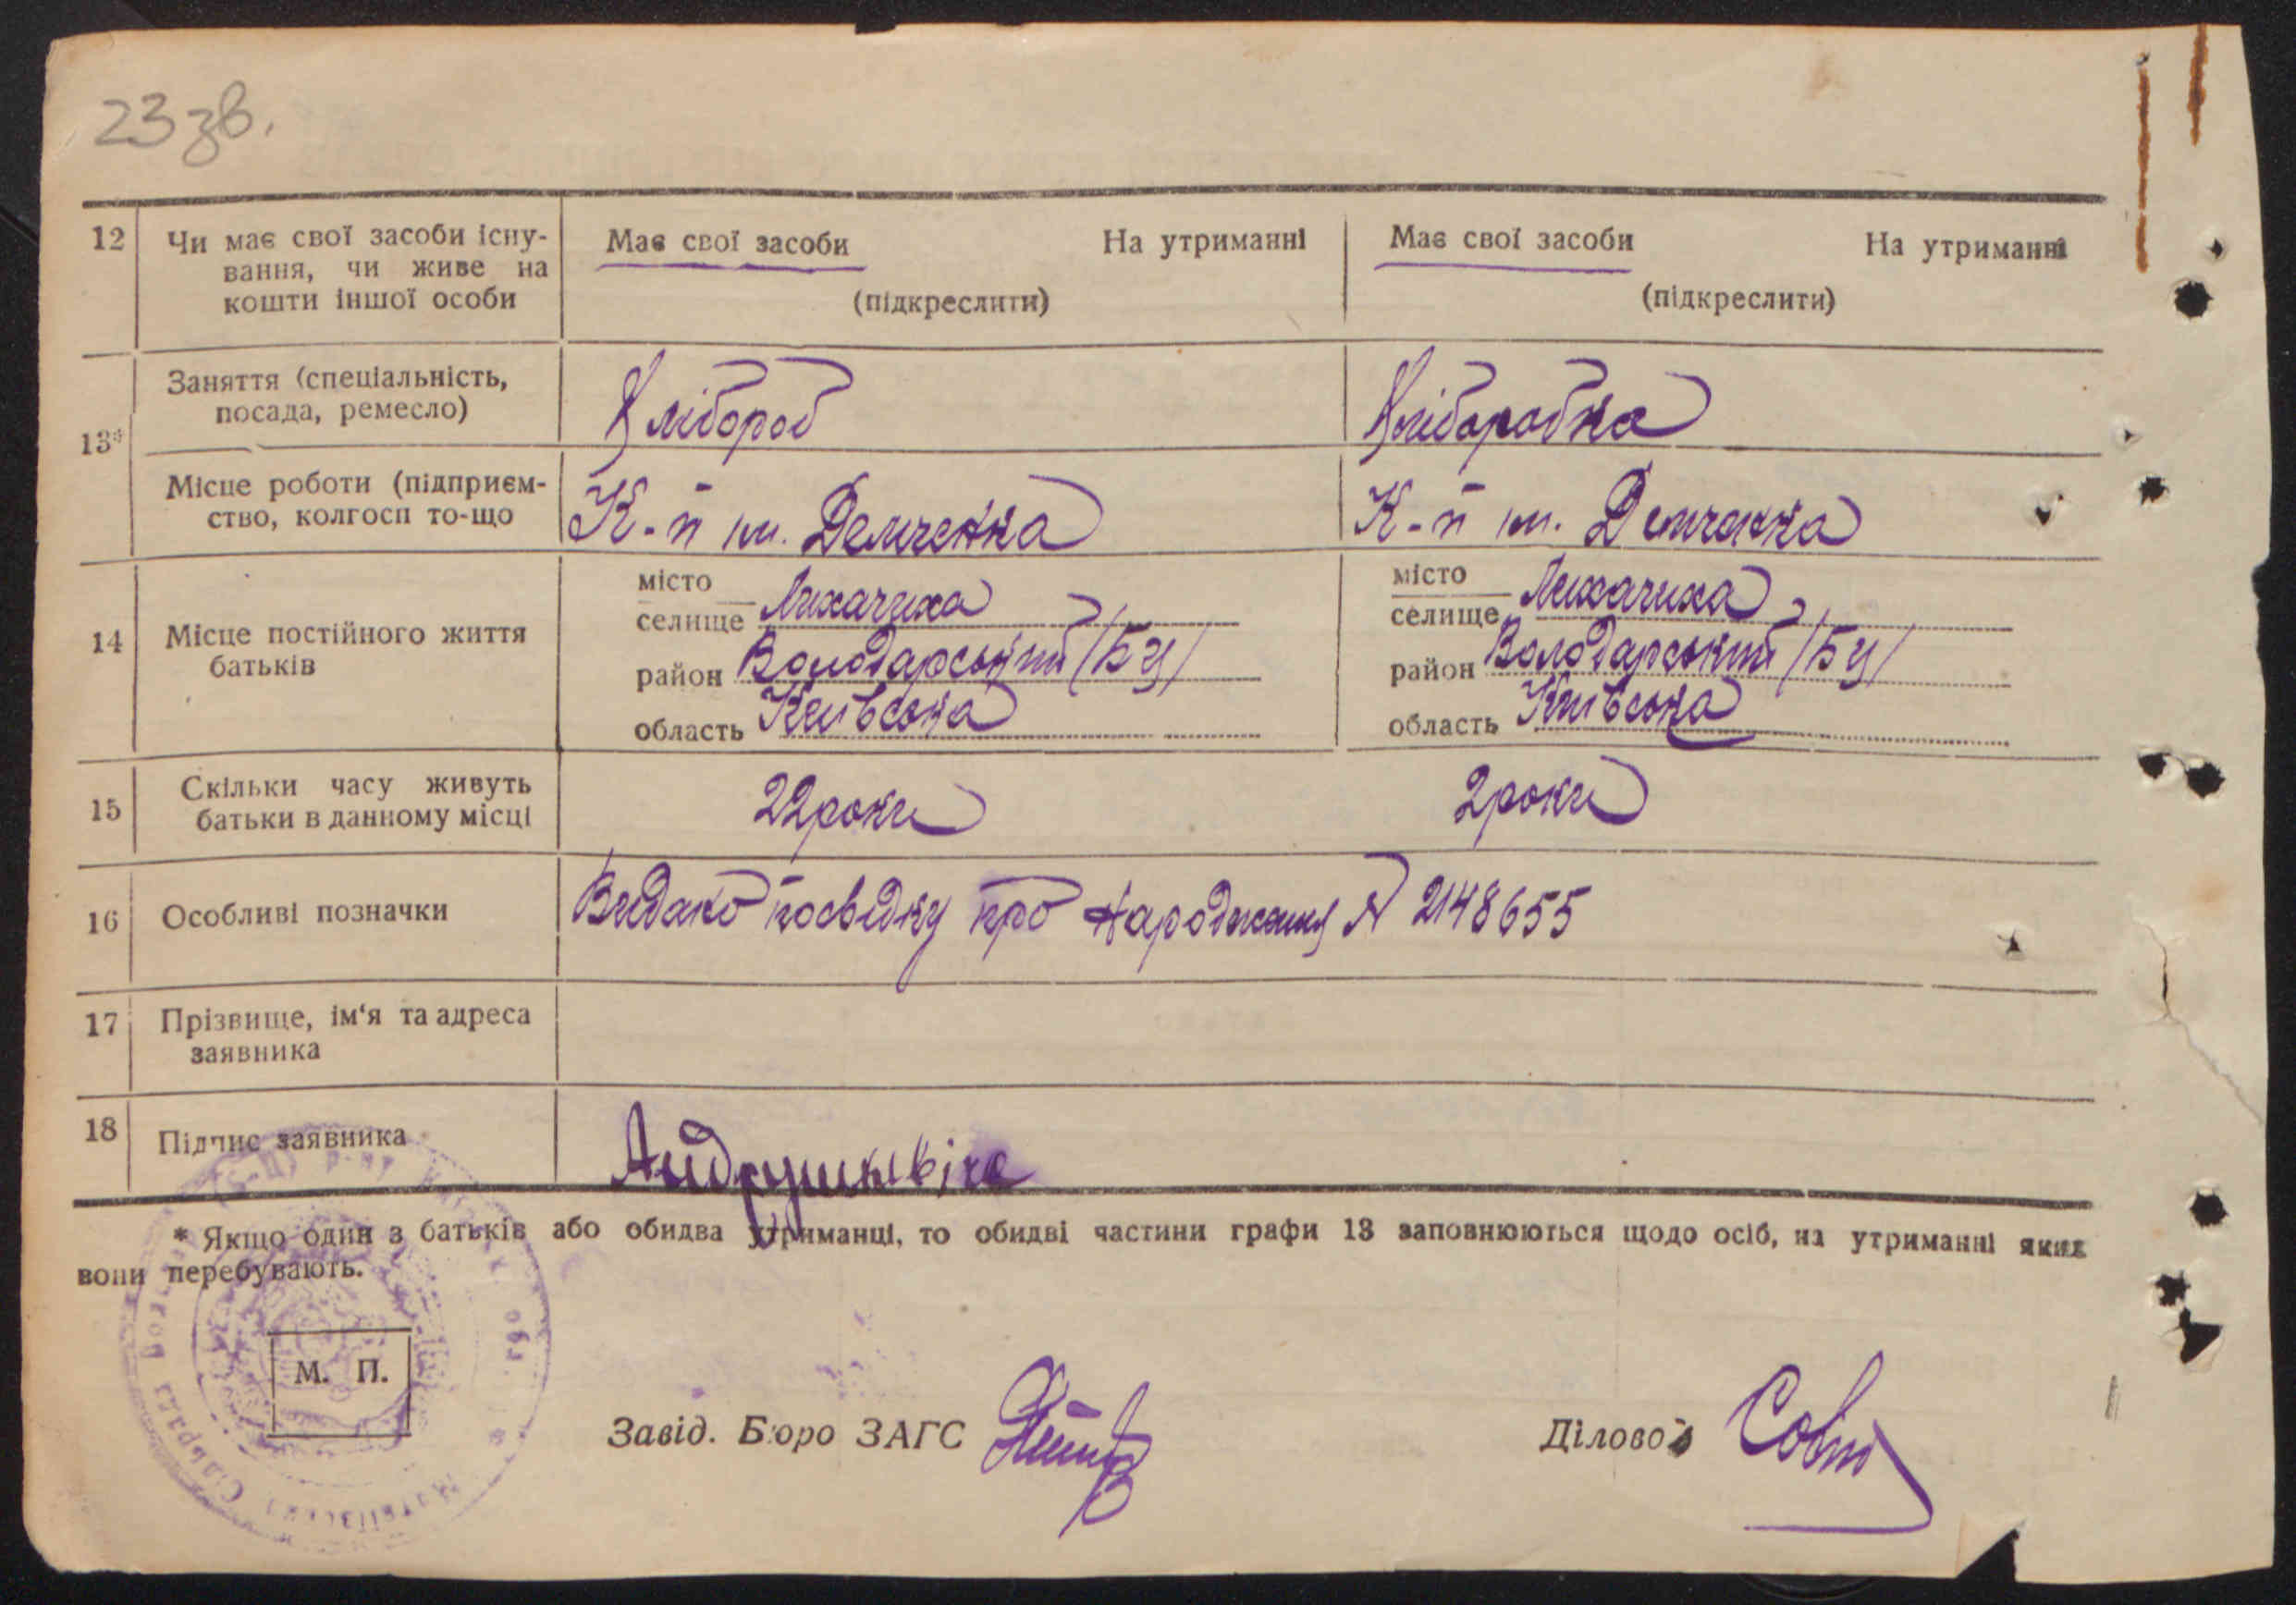 23 зв.
12 Чи має свої засоби існу- Має свої засоби На утриманні Має свої засоби На утриманні
вання, чи живе на
кошти іншої особи (підкреслити) (підкреслити)
13* Заняття (спеціальність, Хлібороб Хліборобка
посада, ремесло)
Місце роботи (підприєм- К-п ім. Демченка К-п ім. Демченка
ство, колгосп то-що
14 Місце постійного життя місто місто
батьків селище Лихачиха селище Лихачиха
район Володарський /БЦ/ район Володарський /БЦ/
область Київська область Київська
15 Скільки часу живуть 22 роки 2 роки
батьки в данному місці
16 Особливі позначки Видано посвідку про народження N 2148655
17 Прізвище, ім‘я та адреса
заявника
18 Підпис заявника
* Якщо один з батьків або обидва утриманці, то обидві частини графи 13 заповнюються щодо осіб, на утриманні яких
вони перебувають.
М. П.
Завід. Бюро ЗАГС Діловод